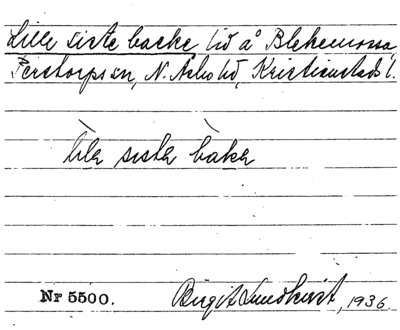 Lille siste backe lid å Blekemossa,
Perstorps sn, N. Åsbo hd, Kristianstads l.
lìla sista bàka
Nr 5500.
Birgit Lundkvist, 1936.